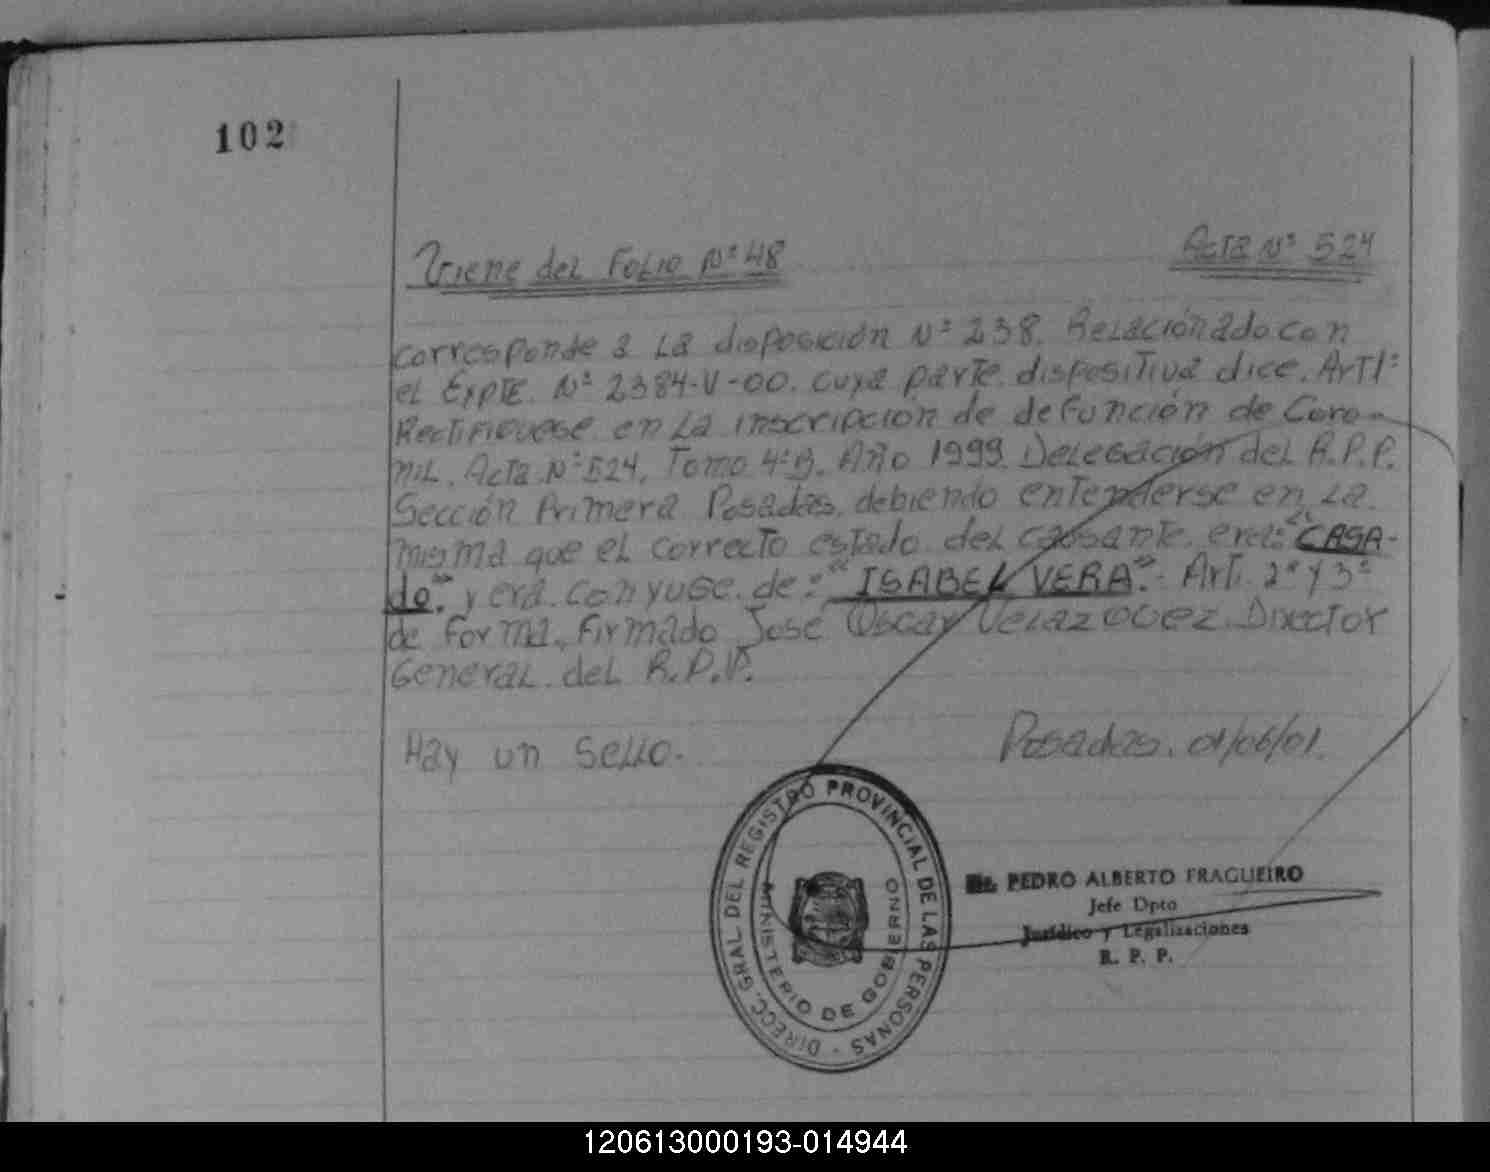 102
Viene del Folio Nº 48
Acta Nº 524
corresponde a La disposición Nº 238. Relacionado con
el Expte. Nº 2384-V-00. cuya parte dispositiva dice. Art 1º
Rectifiquese en La inscripcion de defunción de Coro-
nil. Acta Nº 524. Tomo 4º B. Año 1999. Delegación del R.P.P.
Sección Primera Posadas. debiendo entenderse en La
misma que el correcto estado del causante. era: "CASA-
do". y era conyuge. de: "ISABEL VERA". Art. 2º y 3º
de forma. Firmado José Oscar Velazquez. Director
General del R.P.P.
Hay un Sello.
Posadas. 01/06/01.
DIRECC. GRAL. DEL REGISTRO PROVINCIAL DE LAS PERSONAS -
MINISTERIO DE GOBIERNO
PEDRO ALBERTO FRAGUEIRO
Jefe Dpto
Jurídico y Legalizaciones
R. P. P.
120613000193-014944